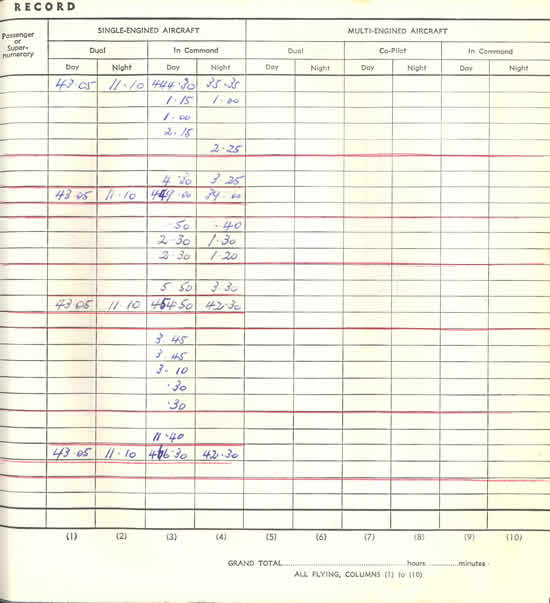 RECORD
Passenger or Super-numerary
SINGLE-ENGINED AIRCRAFT MULTI-ENGINED AIRCRAFT
Dual In Command Dual Co-Pilot In Command
Day Night Day Night Day Night Day Night Day Night
43.05 11.10 444.30 35.35
1.15 1.00
1.00
2.15
2.25
4.30 3.25
43.05 11.10 449.00 39.00
.50 .40
2.30 1.30
2.30 1.20
5 50 3.30
43.05 11.10 454.50 42.30
3.45
3.45
3-10
.30
.30
11.40
43.05 11.10 466.30 42.30
(1) (2) (3) (4) (5) (6) (7) (8) (9) (10)
GRAND TOTAL hours minutes
ALL FLYING, COLUMNS (1) to (10)